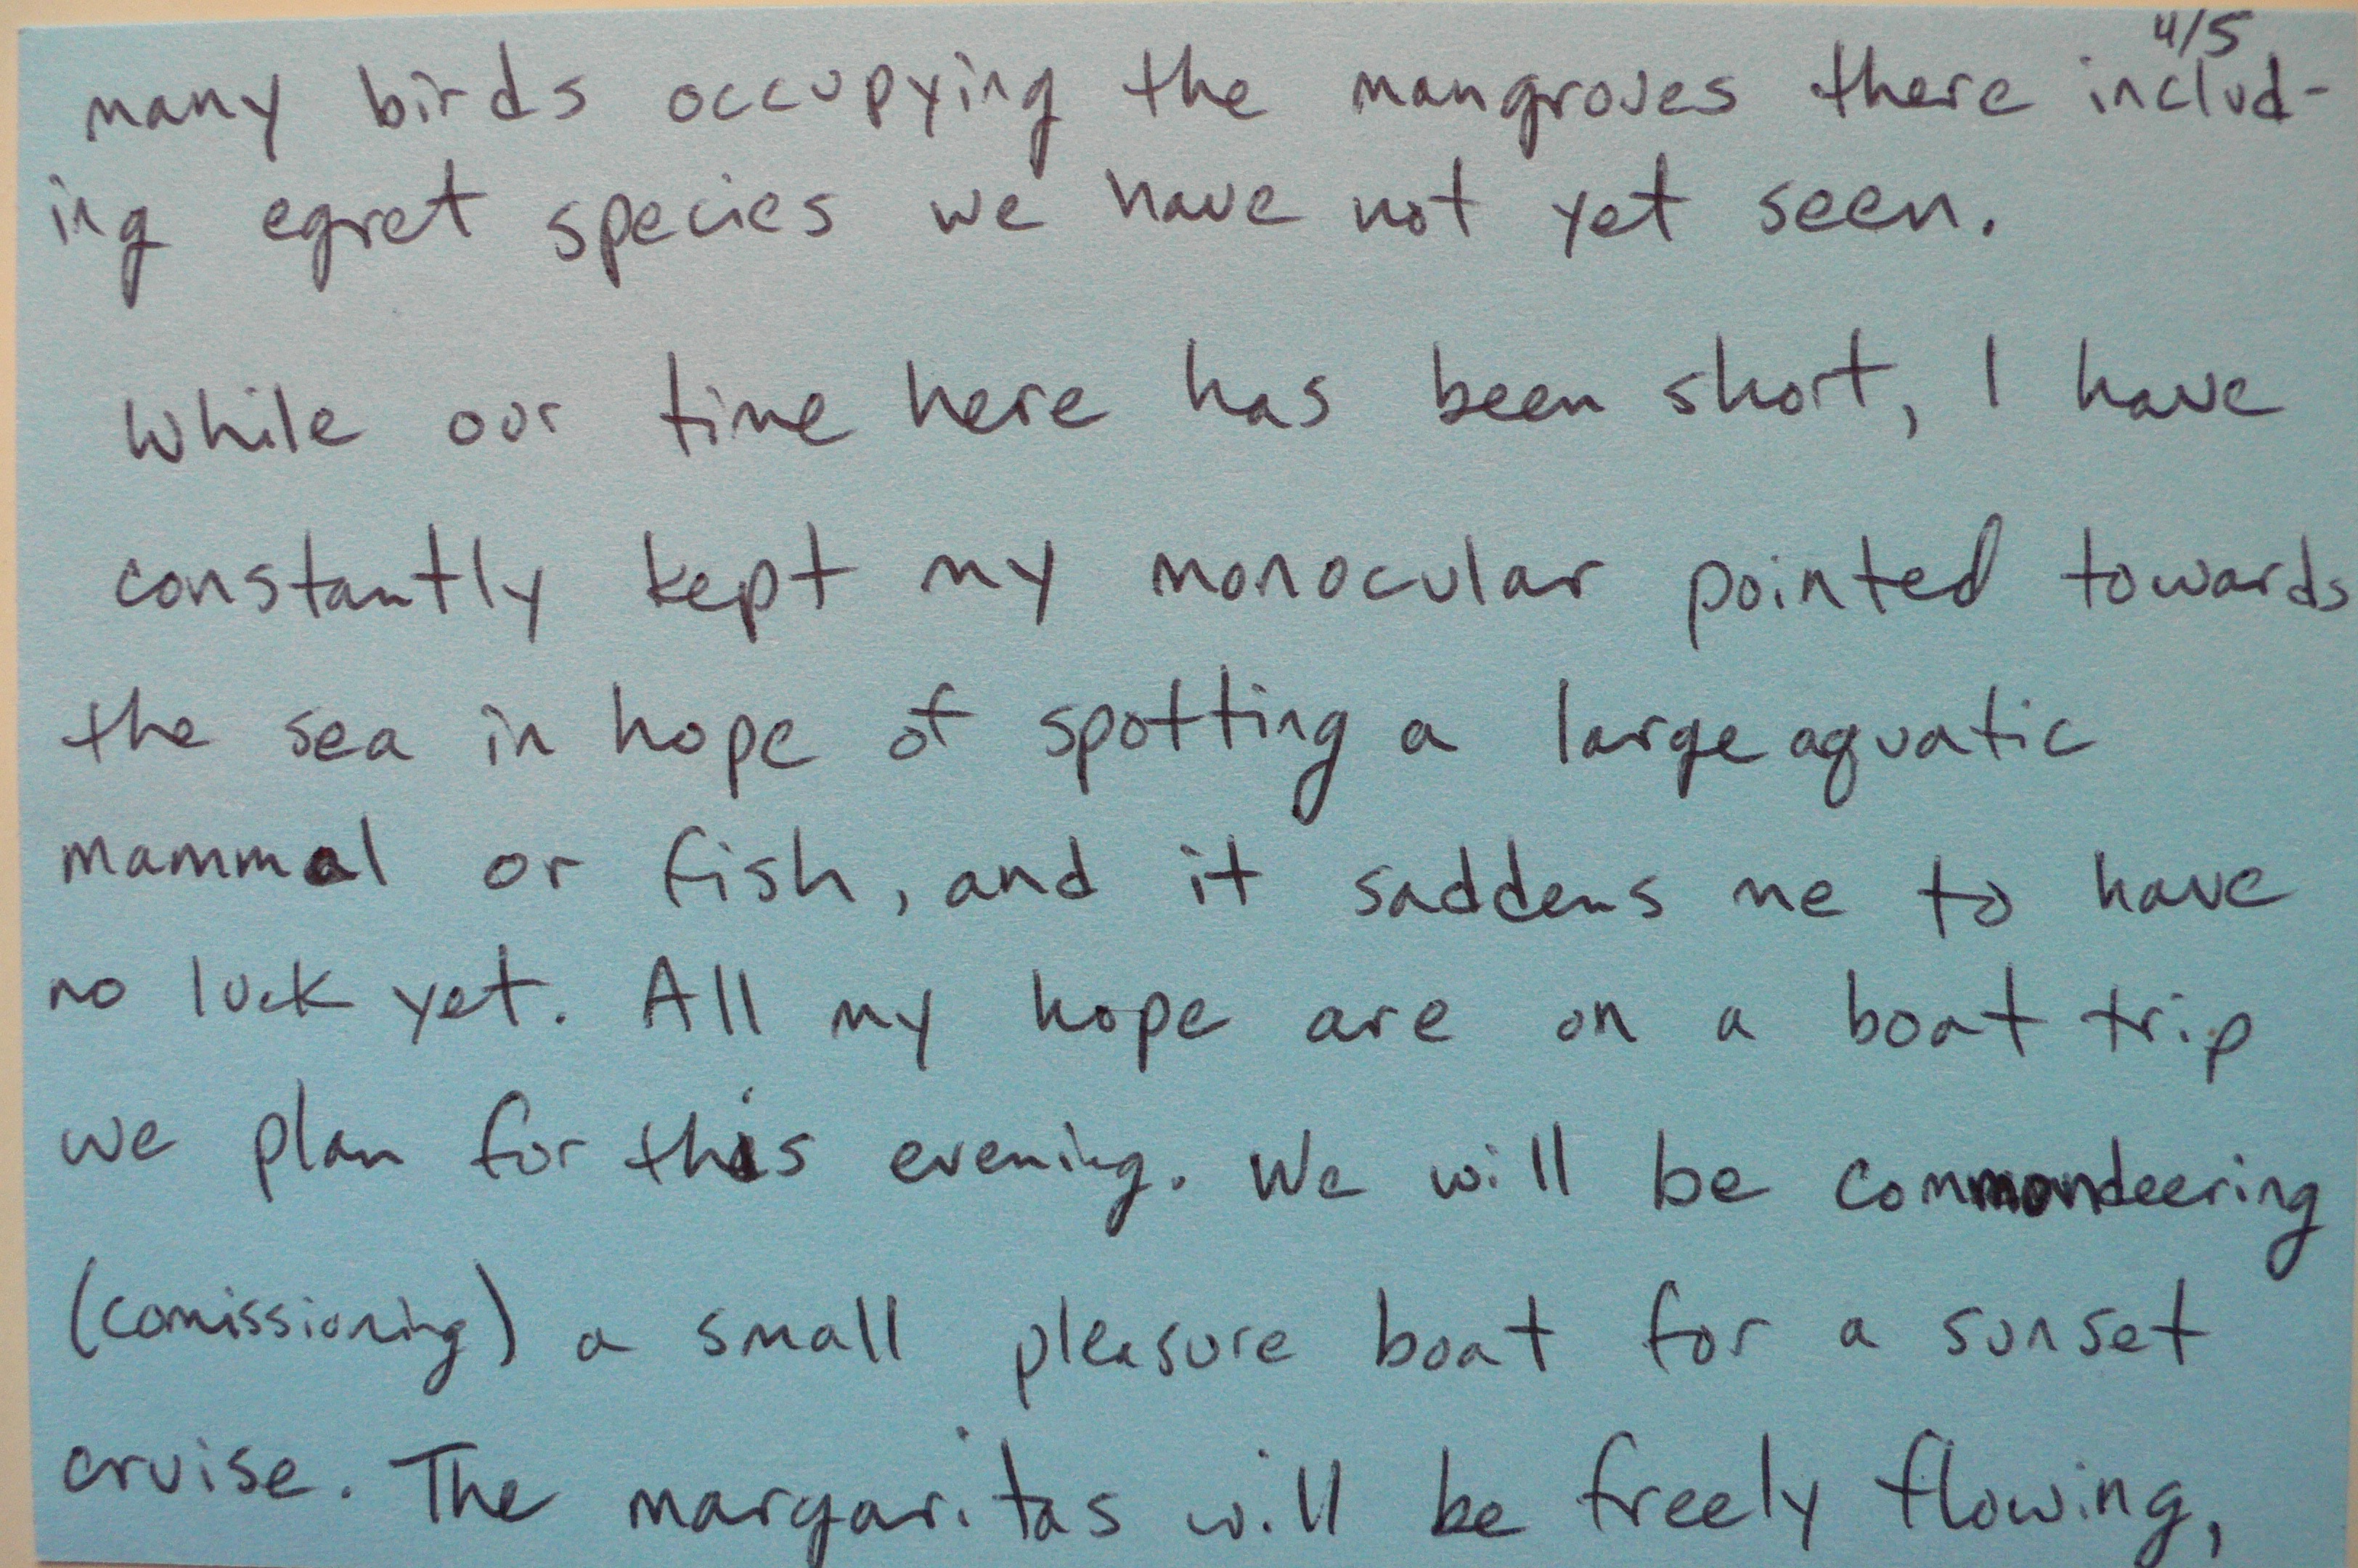 4/5
many birds occupying the mangroves there includ-
ing egret species we have not yet seen.
While our time here has been short, I have
constantly kept my monocular pointed towards
the sea in hope of spotting a large aquatic
mammal or fish, and it saddens me to have
no luck yet. All my hope are on a boat trip
we plan for this evening. We will be commondeering
(comissioning) a small pleasure boat for a sunset
cruise. The margaritas will be freely flowing,